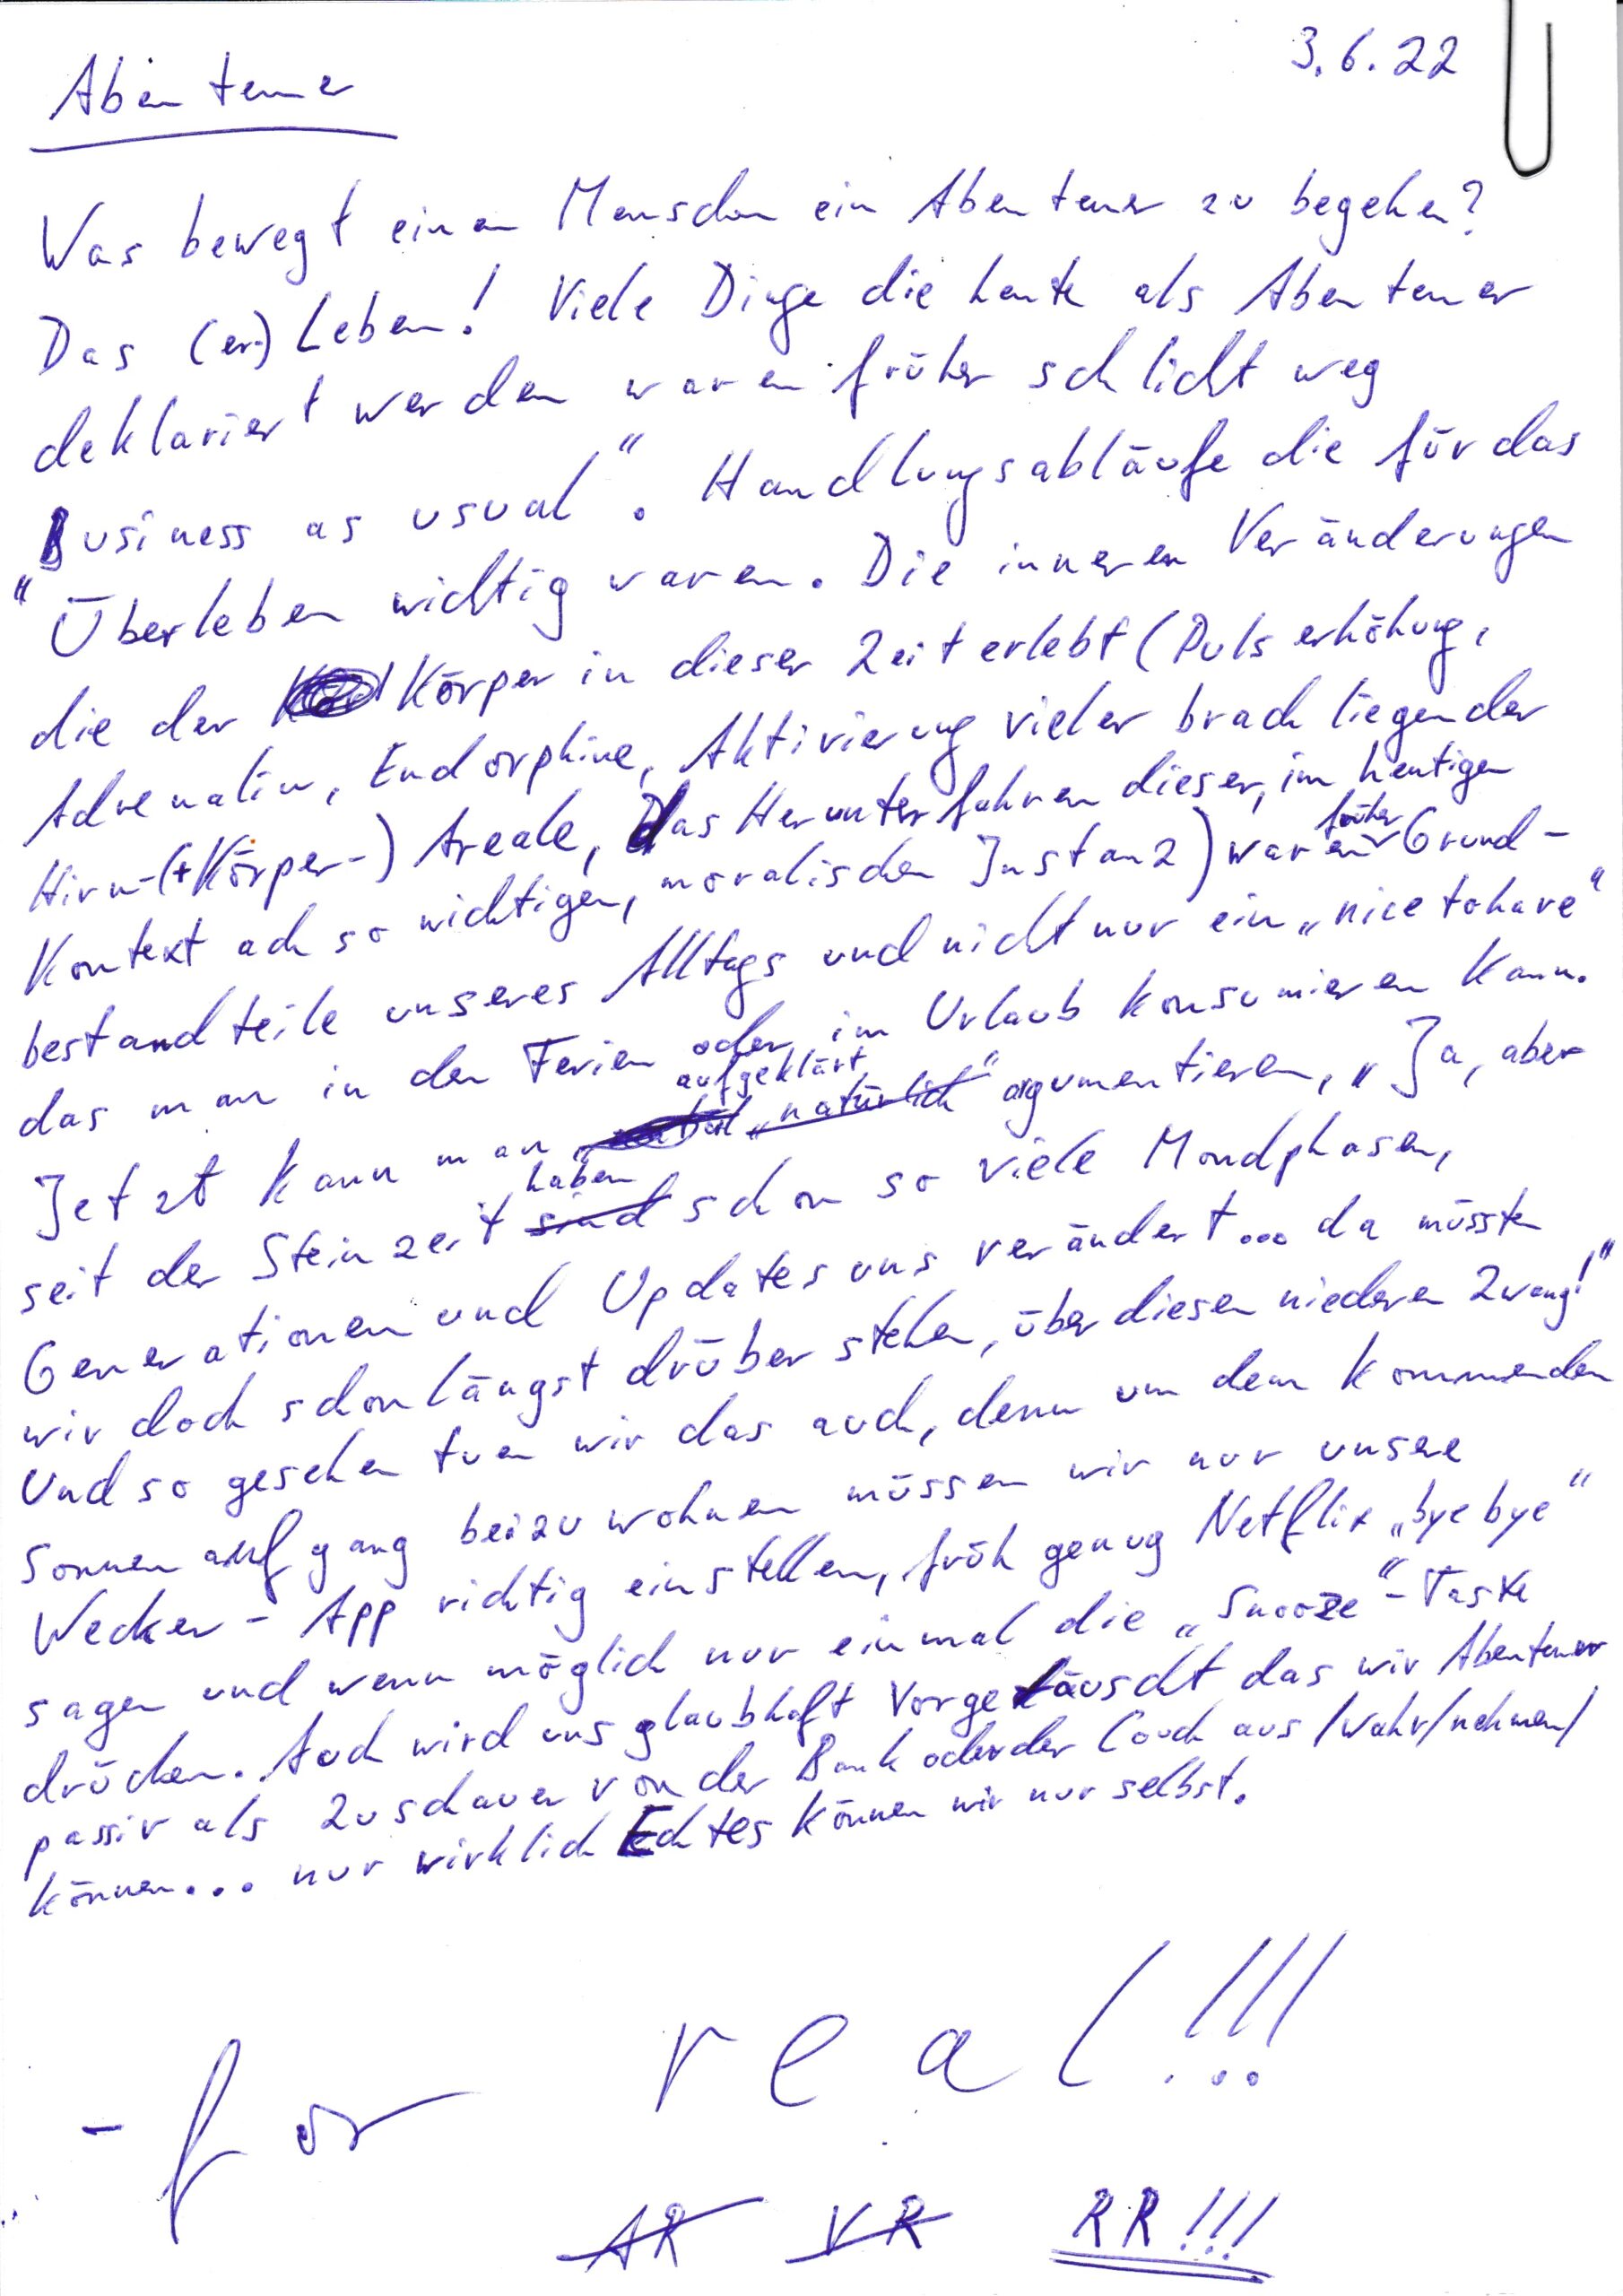 3.6.22
Abenteuer
Was bewegt einen Menschen ein Abenteuer zu begehen?
Das (er-) Leben! Viele Dinge die heute als Abenteuer
deklariert werden waren früher schlicht weg
„Business as usual". Handlungsabläufe die für das
Überleben wichtig waren. Die inneren Veränderungen
die der Körper in dieser Zeit erlebt (Pulserhöhung,
Adrenalin, Endorphine, Aktivierung vieler brach liegender
Hirn-(+Körper-) Areale, das Herunterfahren dieser, im heutigen
Kontext ach so wichtigen, moralischen Instanz) waren früher Grund-
bestandteile unseres Alltags und nicht nur ein „nice to have"
das man in den Ferien oder im Urlaub konsumieren kann.
Jetzt kann man „aufgeklärt" argumentieren, „Ja, aber
seit der Steinzeit haben schon so viele Mondphasen,
Generationen und Updates uns verändert... da müssten
wir doch schon längst drüber stehen, über diesen niederen Zwang!"
Und so gesehen tuen wir das auch, denn um dem kommenden
Sonnenaufgang beizuwohnen müssen wir nur unsere
Wecker-App richtig einstellen, früh genug Netflix „bye bye"
sagen und wenn möglich nur einmal die „Snooze"-Taste
drücken. Auch wird uns glaubhaft vorgetäuscht das wir Abenteuer
passiv als Zuschauer von der Bank oder der Couch aus /wahr/nehmen/
können... nur wirklich Echtes können wir nur selbst.
- for real!!!
AR VR RR!!!